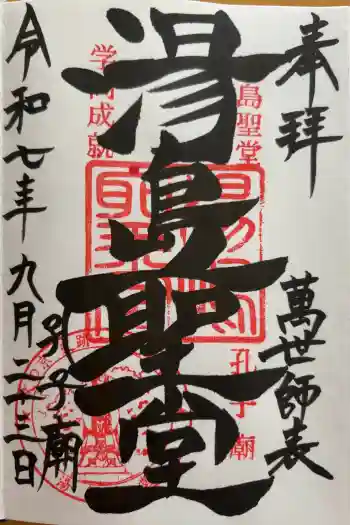 奉拝
萬世師表
島聖堂
孔子廟
湯島聖堂
学問成就
孔子廟
令和七年九月二十三日